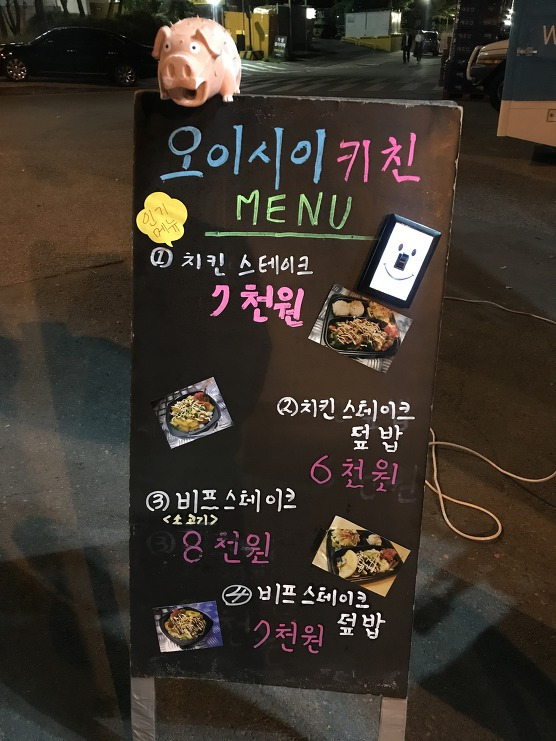 오이시이키친
MENU
인기
메뉴
① 치킨 스테이크
7천원
② 치킨 스테이크
덮밥
6천원
③ 비프스테이크
<소고기>
8천원
④ 비프스테이크
덮밥
7천원